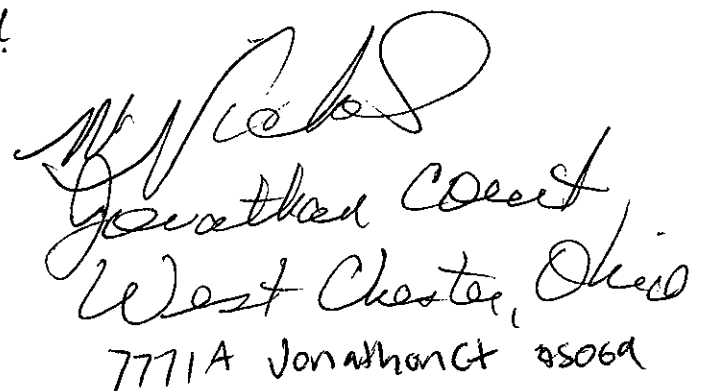 Jonathan Court
West Chester, Ohio
7771A Jonathan Ct 45069